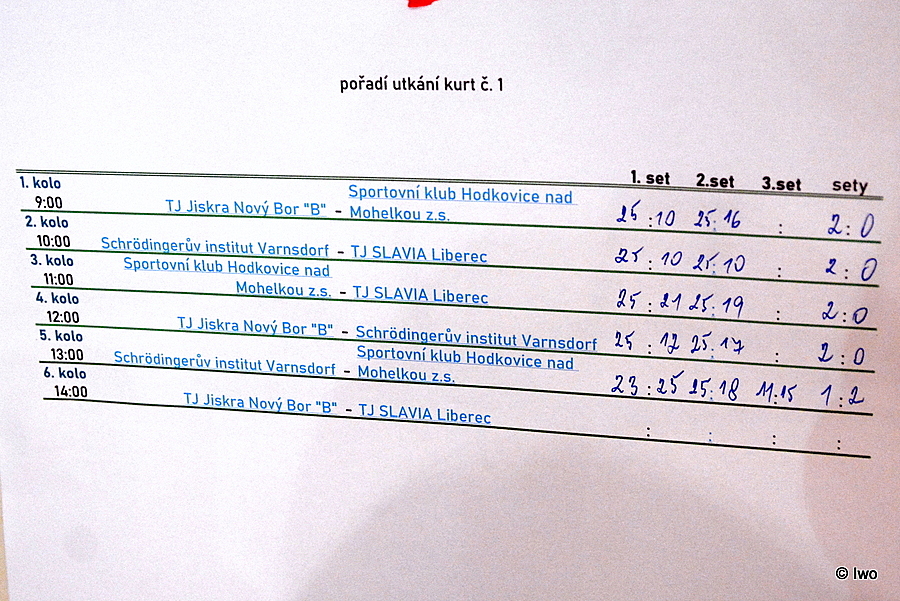 pořadí utkání kurt č. 1
1. set 2.set 3.set sety
1. kolo
9:00 TJ Jiskra Nový Bor "B" - Sportovní klub Hodkovice nad
Mohelkou z.s. 25 : 10 25 : 16 : 2 : 0
2. kolo
10:00 Schrödingerův institut Varnsdorf - TJ SLAVIA Liberec 25 : 10 25 : 10 : 2 : 0
3. kolo Sportovní klub Hodkovice nad
11:00 Mohelkou z.s. - TJ SLAVIA Liberec 25 : 21 25 : 19 : 2 : 0
4. kolo
12:00 TJ Jiskra Nový Bor "B" - Schrödingerův institut Varnsdorf 25 : 12 25 : 17 : 2 : 0
5. kolo Sportovní klub Hodkovice nad
13:00 Schrödingerův institut Varnsdorf - Mohelkou z.s. 23 : 25 25 : 18 11 : 15 1 : 2
6. kolo
14:00 TJ Jiskra Nový Bor "B" - TJ SLAVIA Liberec : : : :
© Iwo